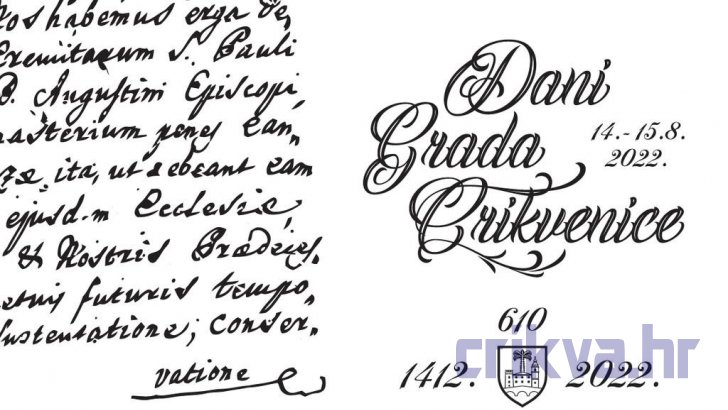 Nos habemus erga de,
Eremitarum S. Pauli
D. Augustini Episcopi
nasterium penes Ean,
ita, ut debeant eam
ejusd-m Ecclesiæ,
& Nostris Prædeces,
futuris tempo,
sustentatione, conser,
vatione
Dani
Grada
Crikvenice
14.-15.8.
2022.
610
1412. 2022.
crikva.hr